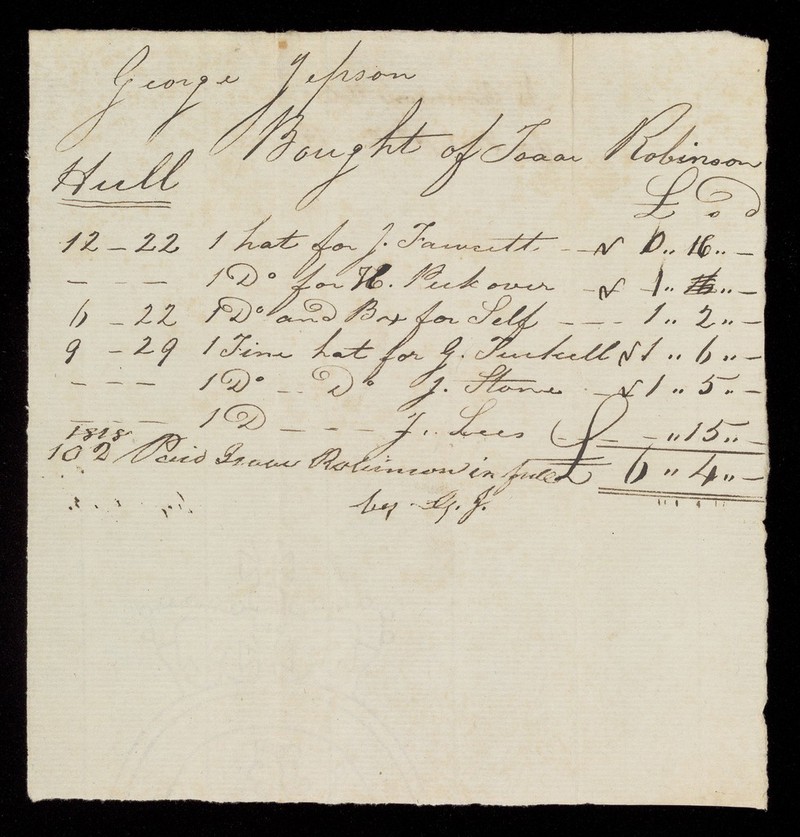 George Jepson
Bought of Isaac Robinson
Hull
£ s d
12 - 22 1 hat for J. Fawcett - - 0 „ 16 „ -
- - - 1 Do for H. Peckover - 1 „ „ -
6 - 22 1 Do and Box for Self - - - 1 „ 2 „ -
9 - 29 1 Fine hat for G. Tuckell 1 „ 6 „ -
- - - 1 Do - - Do J. Stone - 1 „ 5 „ -
- - - 1 D - - - - J. Lees - - „ 15 „ -
1818
10 2 Paid Isaac Robinson in full £ 6 „ 4 „ -
by G. J.